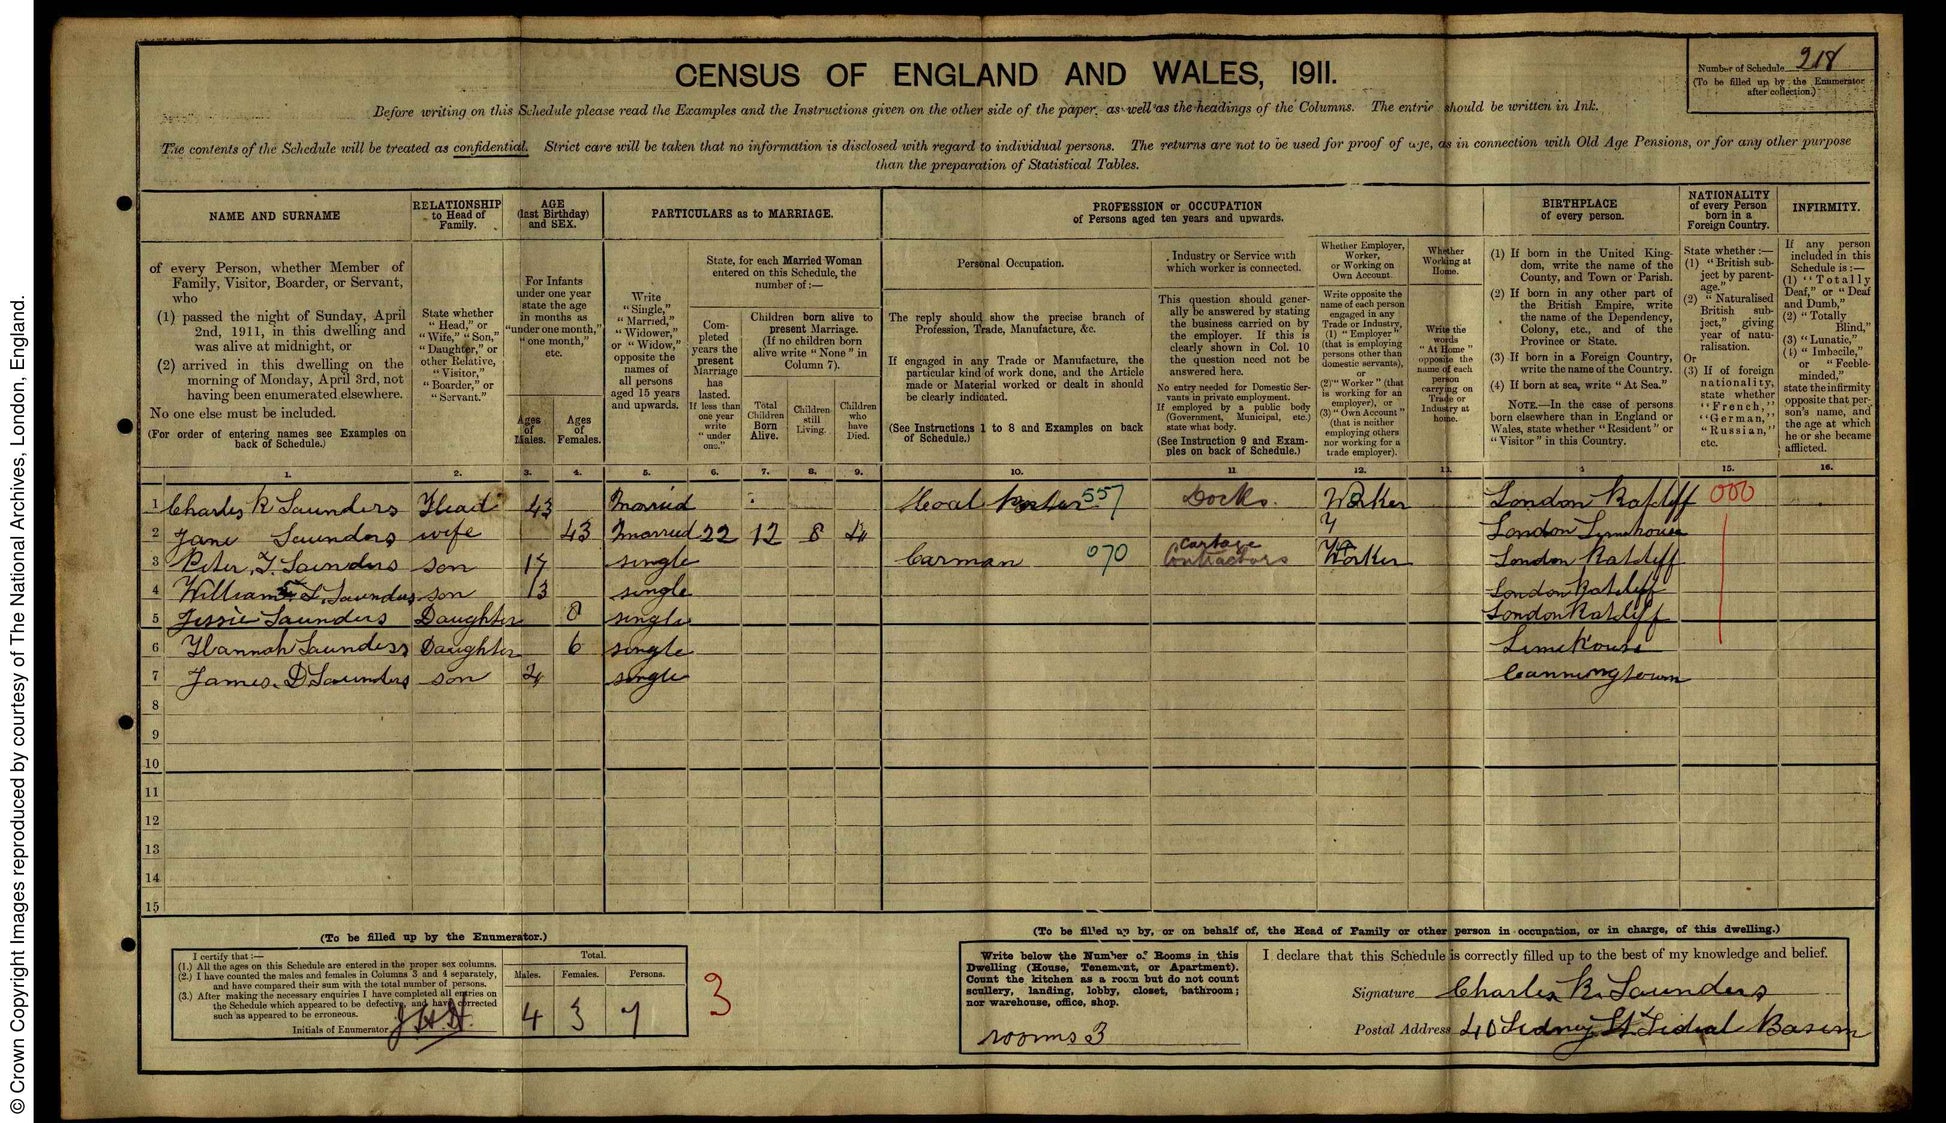 © Crown Copyright Images reproduced by courtesy of The National Archives, London, England.
CENSUS OF ENGLAND AND WALES, 1911.
Number of Schedule 218
(To be filled up by the Enumerator
after collection.)
Before writing on this Schedule please read the Examples and the Instructions given on the other side of the paper, as well as the headings of the Columns. The entrie should be written in Ink.
The contents of the Schedule will be treated as confidential. Strict care will be taken that no information is disclosed with regard to individual persons. The returns are not to be used for proof of age, as in connection with Old Age Pensions, or for any other purpose
than the preparation of Statistical Tables.
NAME AND SURNAME
of every Person, whether Member of
Family, Visitor, Boarder, or Servant,
who
(1) passed the night of Sunday, April
2nd, 1911, in this dwelling and
was alive at midnight, or
(2) arrived in this dwelling on the
morning of Monday, April 3rd, not
having been enumerated elsewhere.
No one else must be included.
(For order of entering names see Examples on
back of Schedule.)
RELATIONSHIP
to Head of
Family.
State whether
"Head," or
"Wife," "Son,"
"Daughter," or
other Relative,
"Visitor,"
"Boarder," or
"Servant."
AGE
(last Birthday)
and SEX.
For Infants
under one year
state the age
in months as
"under one month,"
"one month,"
etc.
Ages
of
Males.
Ages
of
Females.
PARTICULARS as to MARRIAGE.
Write
"Single,"
"Married,"
"Widower,"
or "Widow,"
opposite the
names of
all persons
aged 15 years
and upwards.
State, for each Married Woman
entered on this Schedule, the
number of:—
Com-
pleted
years the
present
Marriage
has
lasted.
If less than
one year
write
"under
one."
Children born alive to
present Marriage.
(If no children born
alive write "None" in
Column 7).
Total
Children
Born
Alive.
Children
still
Living.
Children
who
have
Died.
PROFESSION or OCCUPATION
of Persons aged ten years and upwards.
Personal Occupation.
The reply should show the precise branch of
Profession, Trade, Manufacture, &c.
If engaged in any Trade or Manufacture, the
particular kind of work done, and the Article
made or Material worked or dealt in should
be clearly indicated.
(See Instructions 1 to 8 and Examples on back
of Schedule.)
Industry or Service with
which worker is connected.
This question should gener-
ally be answered by stating
the business carried on by
the employer. If this is
clearly shown in Col. 10
the question need not be
answered here.
No entry needed for Domestic Ser-
vants in private employment.
If employed by a public body
(Government, Municipal, etc.)
state what body.
(See Instruction 9 and Exam-
ples on back of Schedule.)
Whether Employer,
Worker,
or Working on
Own Account.
Write opposite the
name of each person
engaged in any
Trade or Industry,
(1) "Employer"
(that is employing
persons other than
domestic servants),
or
(2) "Worker" (that
is working for an
employer), or
(3) "Own Account"
(that is neither
employing others
nor working for a
trade employer).
Whether
Working at
Home.
Write the
words
"At Home"
opposite the
name of each
person
carrying on
Trade or
Industry at
home.
BIRTHPLACE
of every person.
(1) If born in the United King-
dom, write the name of the
County, and Town or Parish.
(2) If born in any other part of
the British Empire, write
the name of the Dependency,
Colony, etc., and of the
Province or State.
(3) If born in a Foreign Country,
write the name of the Country.
(4) If born at sea, write "At Sea."
NOTE.—In the case of persons
born elsewhere than in England or
Wales, state whether "Resident" or
"Visitor" in this Country.
NATIONALITY
of every Person
born in a
Foreign Country.
State whether:—
(1) "British sub-
ject by parent-
age."
(2) "Naturalised
British sub-
ject," giving
year of natu-
ralisation.
Or
(3) If of foreign
nationality,
state whether
"French,"
"German,"
"Russian,"
etc.
INFIRMITY.
If any person
included in this
Schedule is:—
(1) "Totally
Deaf," or "Deaf
and Dumb,"
(2) "Totally
Blind,"
(3) "Lunatic,"
(4) "Imbecile,"
or "Feeble-
minded,"
state the infirmity
opposite that per-
son's name, and
the age at which
he or she became
afflicted.
1. 2. 3. 4. 5. 6. 7. 8. 9. 10. 11 12. 13. 15. 16.
1 Charles R Saunders Head 43 Married Coal Porter 557 Docks. Worker London Ratcliff 000
2 Jane Saunders wife 43 Married 22 12 8 4 London Limehouse
3 Peter. T. Saunders son 17 single Carman 070 Cartage Contractors Worker London Ratcliff
4 William L. Saunders son 13 single London Ratcliff
5 Jessie Saunders Daughter 8 single London Ratcliff
6 Hannah Saunders Daughter 6 single Limehouse
7 James. D Saunders son 2 single Canningtown
8
9
10
11
12
13
14
15
(To be filled up by the Enumerator.)
I certify that:—
(1.) All the ages on this Schedule are entered in the proper sex columns.
(2.) I have counted the males and females in Columns 3 and 4 separately,
and have compared their sum with the total number of persons.
(3.) After making the necessary enquiries I have completed all entries on
the Schedule which appeared to be defective, and have corrected
such as appeared to be erroneous.
Initials of Enumerator
Total.
Males. Females. Persons.
4 3 7
3
(To be filled up by, or on behalf of, the Head of Family or other person in occupation, or in charge, of this dwelling.)
Write below the Number of Rooms in this
Dwelling (House, Tenement, or Apartment).
Count the kitchen as a room but do not count
scullery, landing, lobby, closet, bathroom;
nor warehouse, office, shop.
rooms 3
I declare that this Schedule is correctly filled up to the best of my knowledge and belief.
Signature Charles R. Saunders
Postal Address 40 Sidney St Tidal Basin